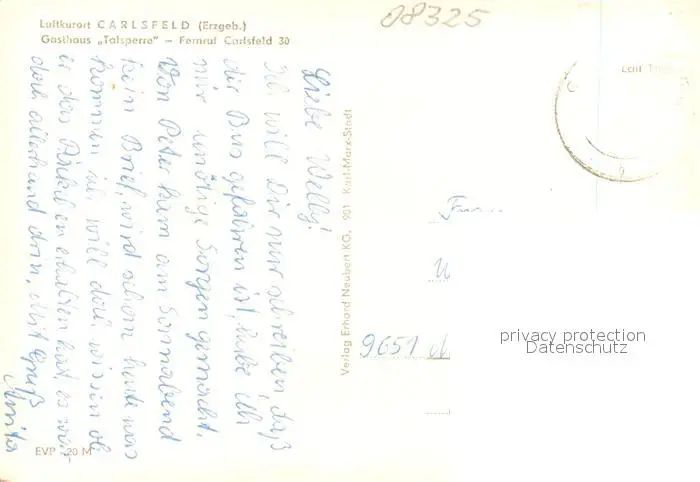 Luftkurort CARLSFELD (Erzgeb.)
Gasthaus „Talsperre" – Fernruf Carlsfeld 30
08325
Liebe Welly!
Ich will Dir nur schreiben, daß
der Bus gefahren ist, habe ich
mir unnötige Sorgen gemacht.
Von Peter kam am Sonnabend
kein Brief, wird schon heute was
kommen, ich will doch wissen ob
er das Päckchen erhalten hat, es war
doch allerhand drin, Mit Gruß
Anita
Verlag Erhard Neubert KG, 901 Karl-Marx-Stadt
9651
privacy protection
Datenschutz
EVP -20 M